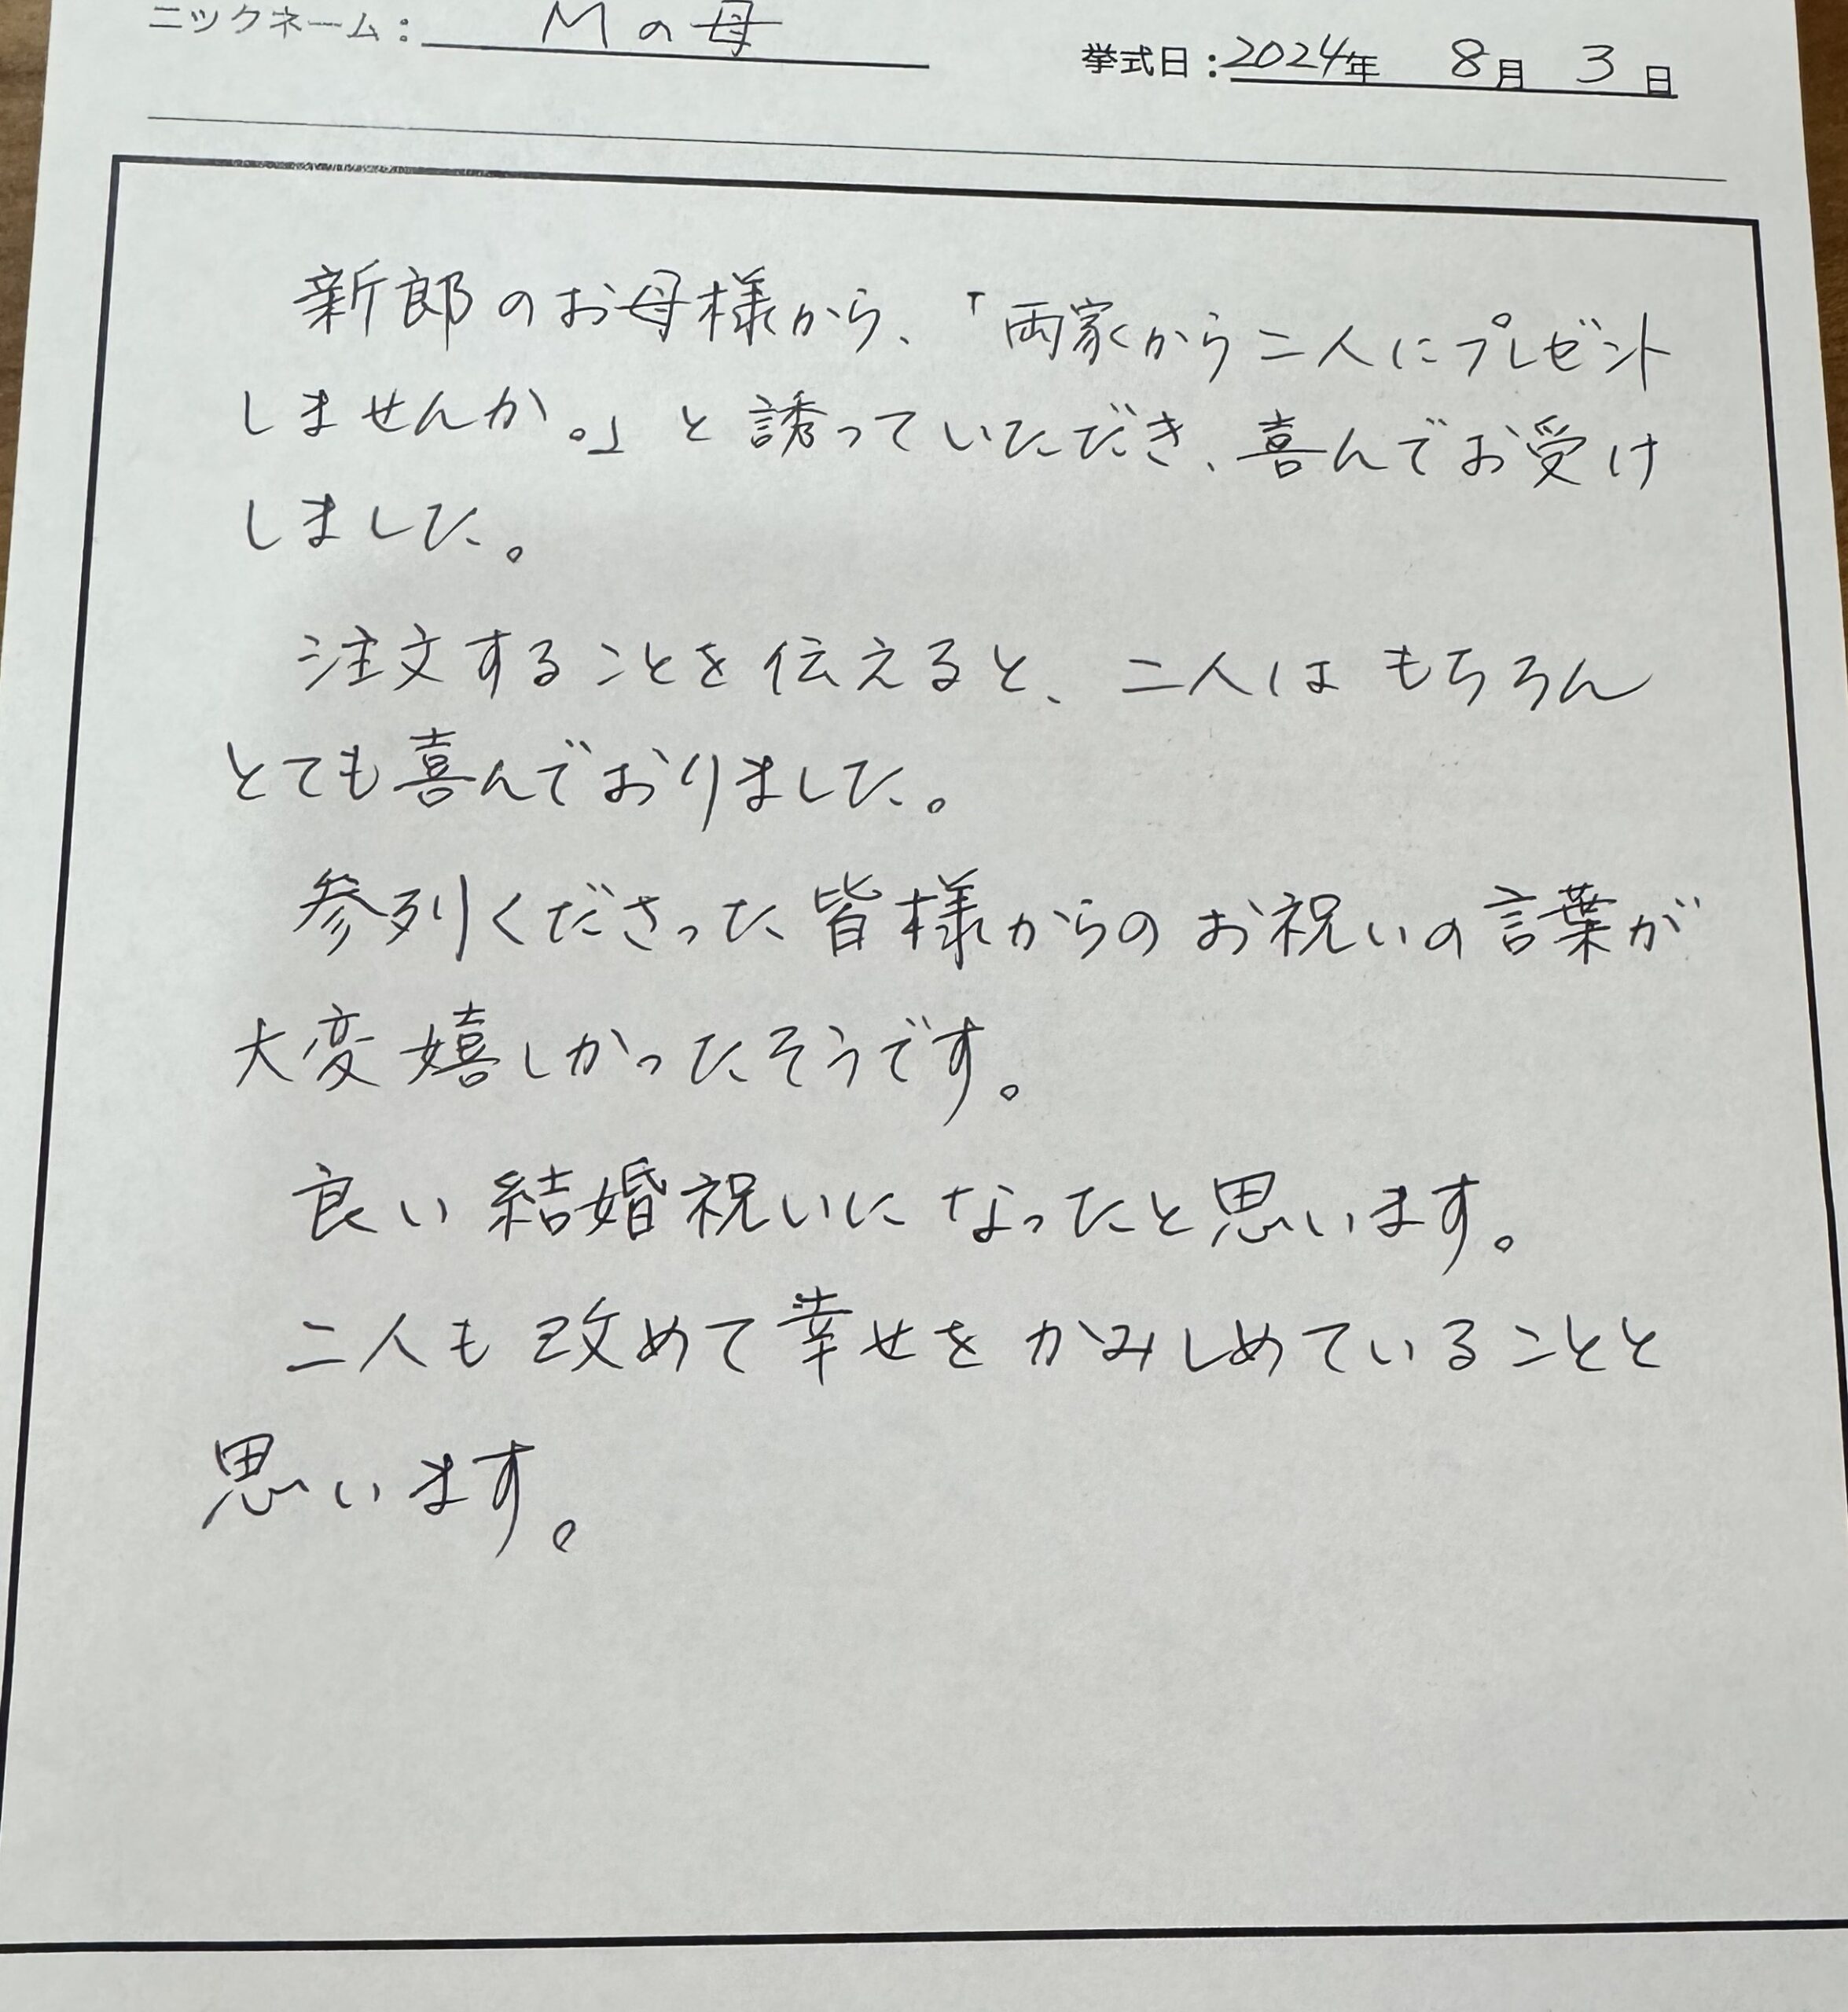 ニックネーム： Mの母
挙式日：2024年 8月 3日
新郎のお母様から、「両家から二人にプレゼント
しませんか。」と誘っていただき、喜んでお受け
しました。
注文することを伝えると、二人はもちろん
とても喜んでおりました。
参列くださった皆様からのお祝いの言葉が
大変嬉しかったそうです。
良い結婚祝いになったと思います。
二人も改めて幸せをかみしめていることと
思います。